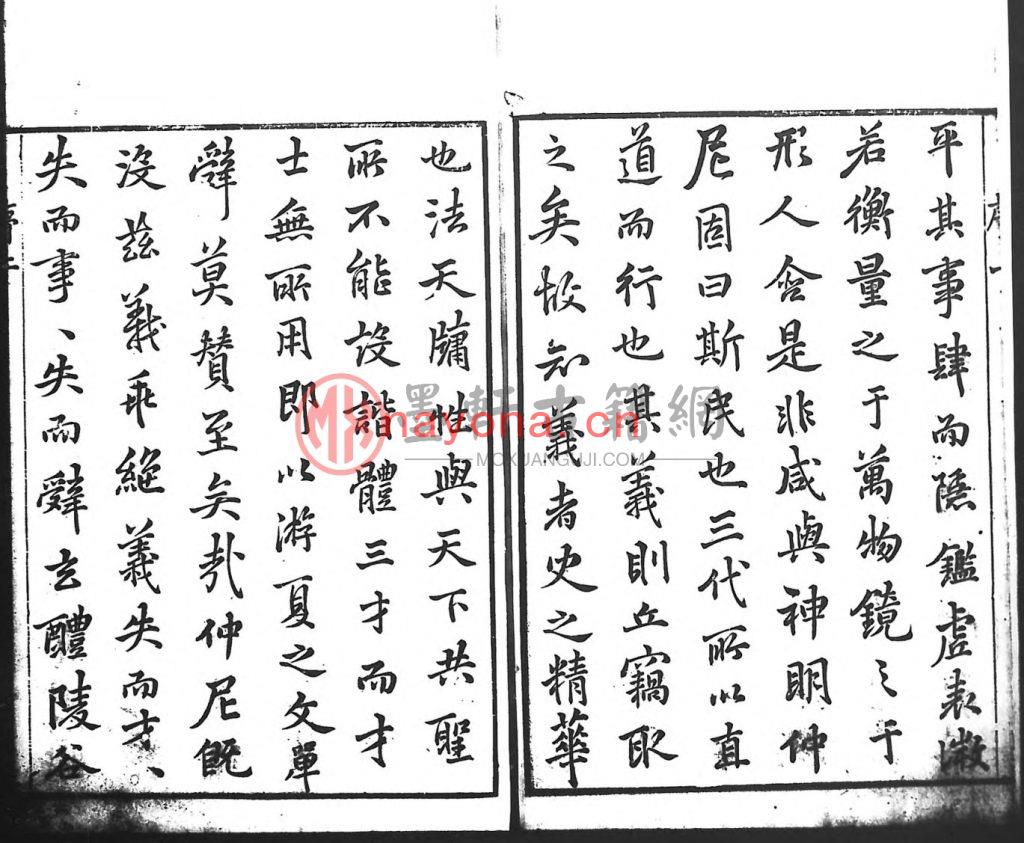 平其事肆而隱鑑虛表澂
若衡量之于萬物鏡之于
形人舍是非咸與神明仲
尼固曰斯民也三代所以直
道而行也其義則丘竊取
之矣故知義者史之精華
也法天牖性與天下共聖
所不能設諧體三才而才
士無所用即以游夏之文單
辭莫贊至矣哉仲尼既
沒茲義乖絕義失而才、
失而事、失而辭玄醴陵谷
序一
墨軒古籍網
nayona.cn
MOXUANGUJI.COM